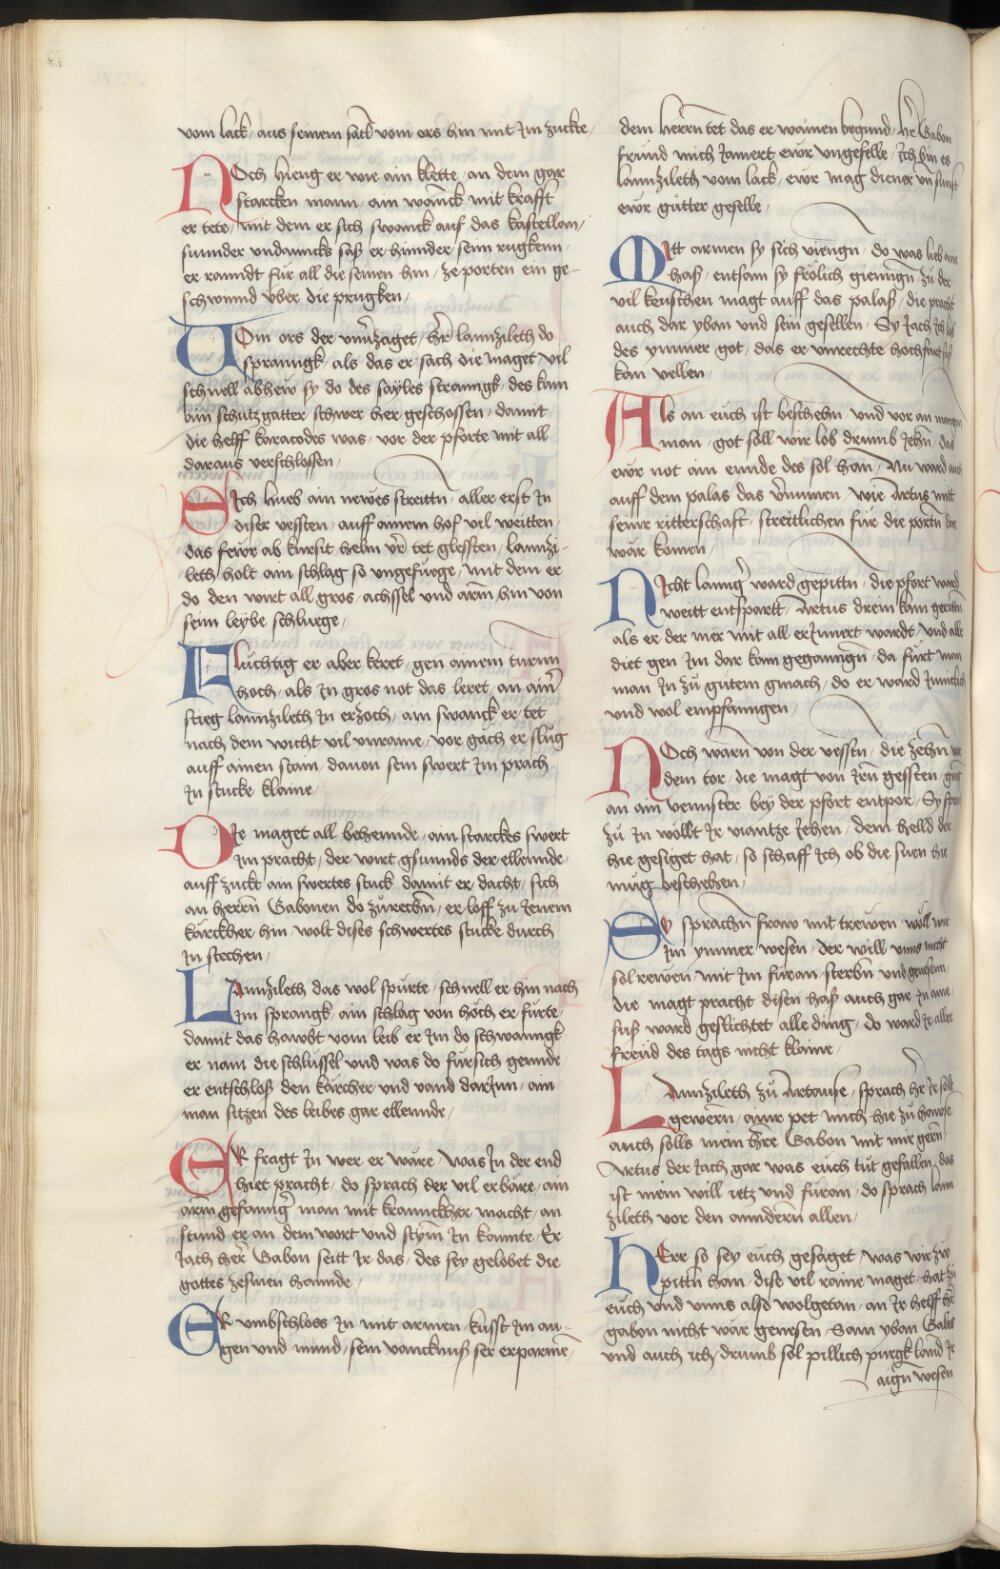 vom lack / aus seinem satl vom ors hin mit Im zuckte /
NOch hieng er wie ain klette / an dem gar
starcken mann / ain wanck mit krafft
er tete / mit dem er sich swanck auf das kastellan /
sunnder vndanncks sasz er hinnder seim rugkenn
er ranndt für all die seinen hin / ze porten ein ge-
schwind vber die prugken /
VOm ors der vnuerzaget / her lannzileth do
spranngk / als das er sach die maget vil
schnell abhew sy do des sayles stranngk / des kam
ain schutzgatter schwer her geschossen / damit
die helff karacodes was / vor der pforte mit all
daraus verschlossen /
SIch hueb ain newes streittn / aller erst In
diser vessten / auff ainem hof vil weitten /
das fewr ab kursit helm vn tet glessten / lannzi-
leth holt ain schlag so vngefuoge / mit dem er
do den wirt all gros / achssel vnd arm hin von
seim leybe schluege /
FLuchtig er aber keret / gen ainem turnn
hoch / als In gros not das leret / an ainr
stieg lannzileth In erzoch / ain swanck er tet
nach dem wicht vil vnraine / vor gach er slug
auff ainen stain / dauon sein swert Im prach
In stucke klaine /
DIe maget all behennde / ain starckes swert
Im pracht / der wirt gsunnds der ellennde /
auff zuckt ain swertes stuck damit er dacht / sich
an herrn Gabonen do zurechn / er loff zu Jenem
kärckher hin / wolt dises schwertes stucke durch
In stechen /
LAnnzileth das wol spurte / schnell er hin nach
Im sprangk / ain schlag von höch er furte /
damit das hawbt vom leib er Im do schwanngk
er nam die schlüssel vnd was do fürsich gennde
er entschlosz den kärcher vnd vand darInn / ain
man sitzen des leibes gar ellennde /
ER fragt In wer er wäre / was In der end
hiet pracht / do sprach der vil erbäre / ain
arm gefanngr man mit kranncklher macht / an
stund er an dem wort vnd stym In kannte / Er
Jach herr Gabon seit Ir das / des sey gelobet die
gottes zesmen hannde /
ER vmbschloss In mit armen / kusst Im au-
gen vnd mund / sein vancknusz ser erparmn /
dem herrn tet das er wainen begund / her Gabon
frund mich Iamert ewr vngefelle / Ich bin es
lannzileth vom lack / ewr mag diener vn sunst
ewr gutter geselle /
MItt armen sy sich viengn / do was lieb ane
hasz / entsam sy frölich giengn / zu der
vil keuschen magt auff das palasz / die pracht
auch dar yban vnd sein gesellen / Sy Jach Ich lob
des ymmer got / das er vnrechte hochfart
kan vellen /
ALs an euch ist beschehn / vnd vor an mangn
man / got soll wir lob drumb Iehn / das
ewr not ain ennde des sol han / Nu ward auch
auff dem palas das vernumen / wie Artus mit
seiner ritterschaft / streitlichen für die portn dar
wär komen /
NIcht lanngr ward gepittn / die pfort ward
weitt entspartt / Artus drein kam gerittn
als er der mer mit all erInnert wardt / vnd alle
diet gen Im dar kam geganngn / da fürt man
man In zu gutem gmach / do er ward Inneclich
vnd wol empfanngen /
NOch warn von der vessten / die zehn vor
dem tor / die magt von Irn gessten / gieng
an ain vennster bey der pforte entpor / Sy sprach
zu In wollt Ir viantze Jehen / dem helld der
hie gesiget hat / so schaff Ich ob die suen hie
mug beschehen /
SY sprachn fraw mit trewen / well wir
Im ymmer wesen / der will vnns nicht
sol rewen mit Im füran sterbn vnd genesenn
die magt pracht disen hasz auch gar In aine
suesz ward geslichtet alle ding / do ward Ir aller
freud des tags nicht klaine /
LAnnzileth zu Artause / sprach her Ir solt
gewern / ainr pet mich hie zu hawse
auch solls mein herre Gabon mit mir gern
Artus der Jach gar was euch tut gefallen / das
ist mein will ietz vnd füran / do sprach lann
zileth vor den anndern allen /
HErr so sey euch gesaget / was wir zw
pittn han / dise vil raine maget / hat zu
euch vnd vnns also wolgetan / an Ir helff her
gabon nicht wär genesen / Sam yban Gales
vnd auch ich / drumb sol pillich purgk land Ir
aign wesen